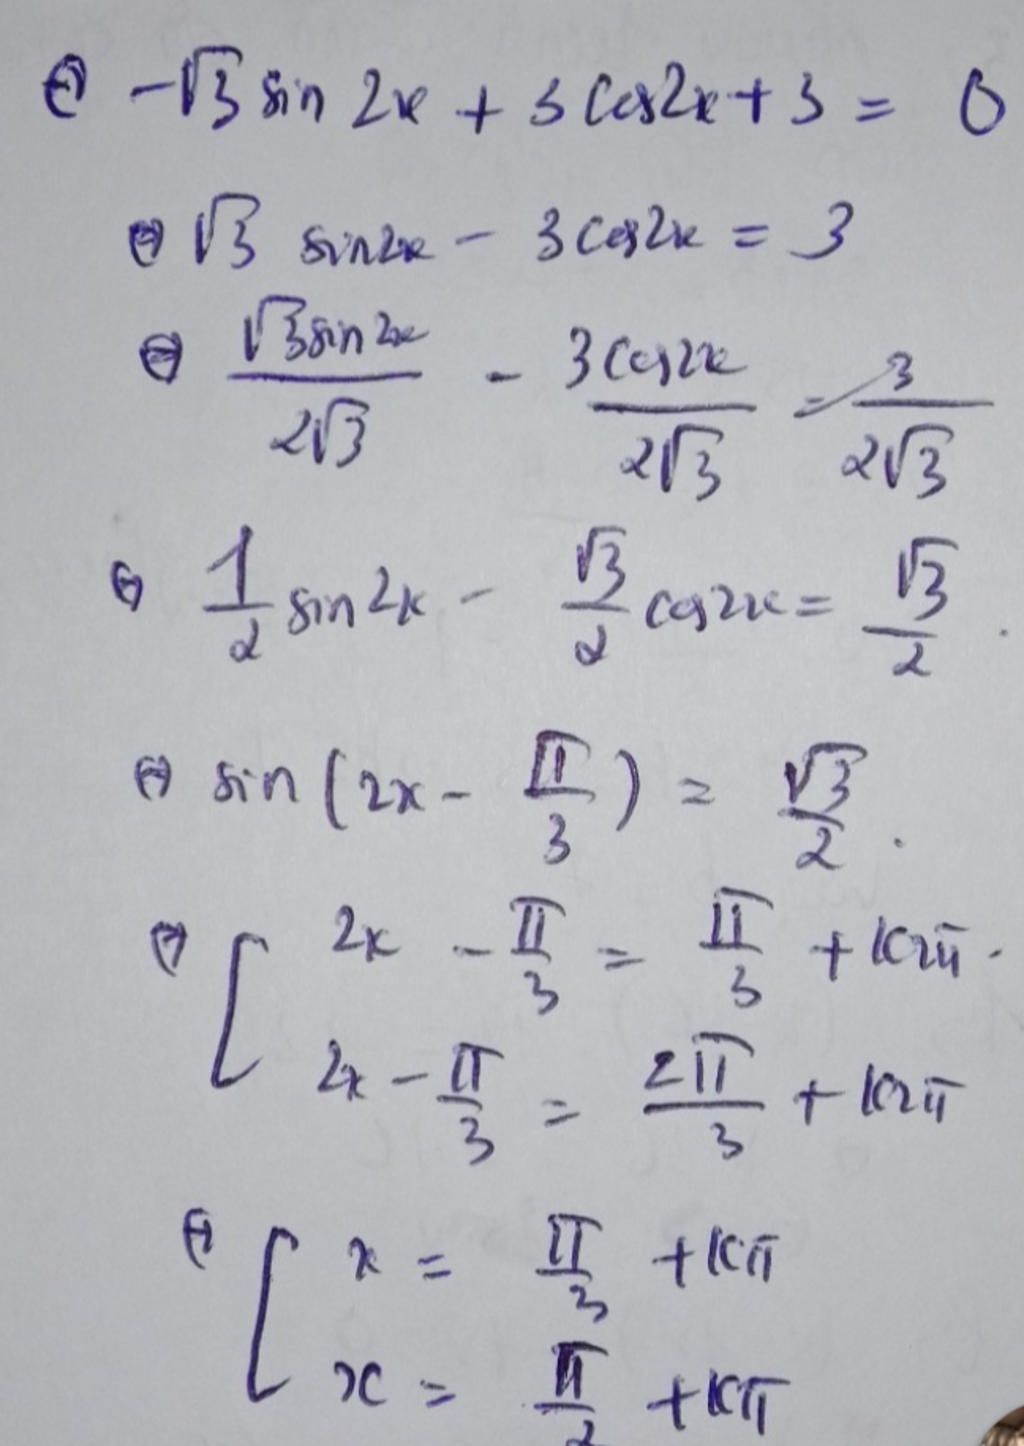 ⇔ -√3 sin 2x + 3 cos2x + 3 = 0
⇔ √3 sin2x - 3cos2x = 3
⇔ √3sin2x/2√3 - 3cos2x/2√3 = 3/2√3
⇔ 1/2 sin2x - √3/2 cos2x = √3/2.
⇔ sin(2x - π/3) = √3/2.
⇔ [ 2x - π/3 = π/3 + k2π.
2x - π/3 = 2π/3 + k2π
⇔ [ x = π/3 + kπ
x = π/2 + kπ